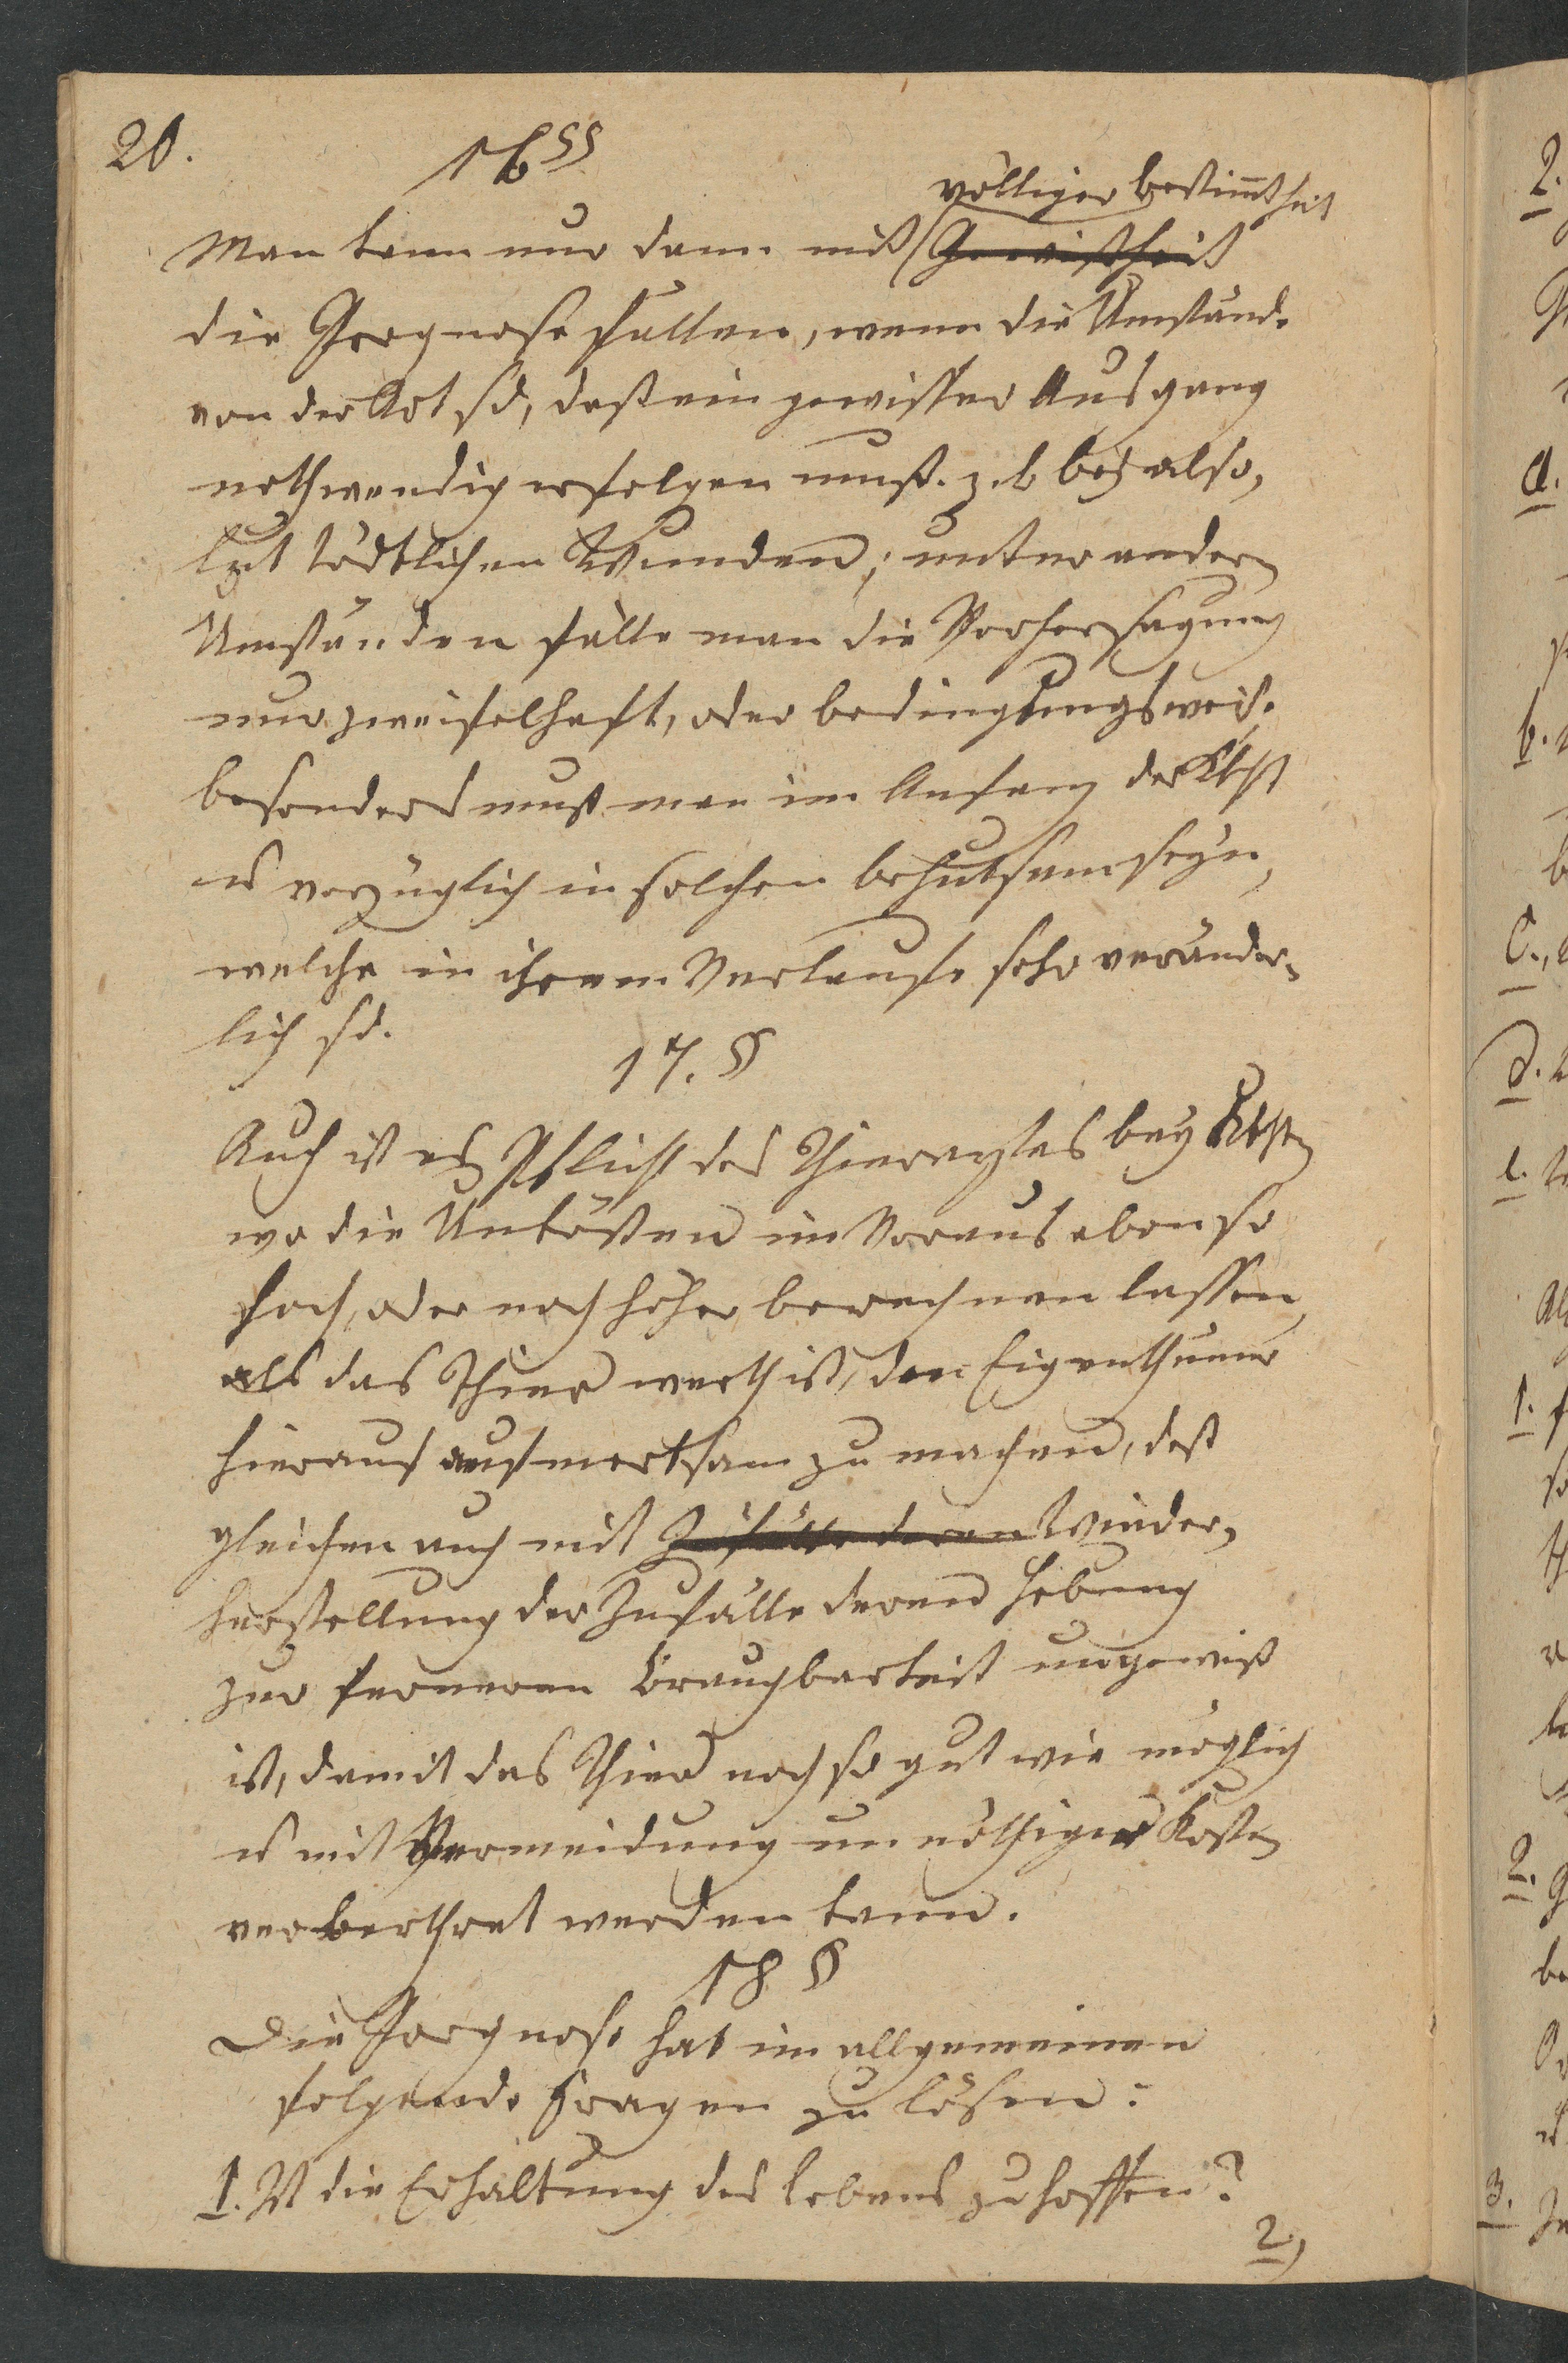 20.
16 §§
völliger Bestim̄theit
Man kann nur dann mit Gewißheit
die Prognose fällen, wenn die Umstände
von der Art sd, daß ein gewisser Ausgang
nothwendig erfolgen muß. z. b bey abso,
lut tödtlichen Wunden; unter andern
Umständen fälle man die Vorhersagung
nur zweifelhaft, oder bedingungsweise.
besonders muß man im Anfang der Kht
u vorzüglich in solchen behutsam seyn,
welche in ihrem Verlaufe sehr veränder,
lich sd.
17. §
Auch ist es Pflicht des Thierarztes bey
wo die Unkösten im Voraus eben so
hoch, oder noch höher berechnen lassen,
als das Thier werth ist, den Eigenthümer
hierauf aufmerksam zu machen, deß
gleichen auch mit Zufälle deren Wieder,
herstellung der Zufälle deren Hebung
zur ferneren Brauchbarkeit ungewiß
ist, damit das Thier noch so gut wie möglich
u mit Vermeidung unnöthiger Kosten
werden kann.
18 §
Die Prognose hat im allgemeinen
folgende Fragen zu lösen:
1. Ist die Erhaltung des Lebens zu hoffen?
2)